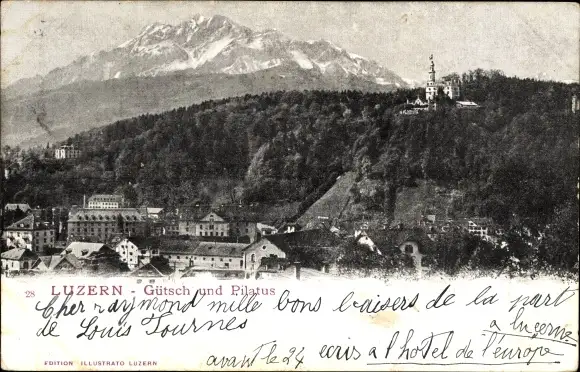 28 LUZERN - Gütsch und Pilatus
Cher Raymond mille bons baisers de la part
de Louis Tournes
à lucerne
avant le 24 ecris a l'hotel de l'europe
EDITION ILLUSTRATO LUZERN